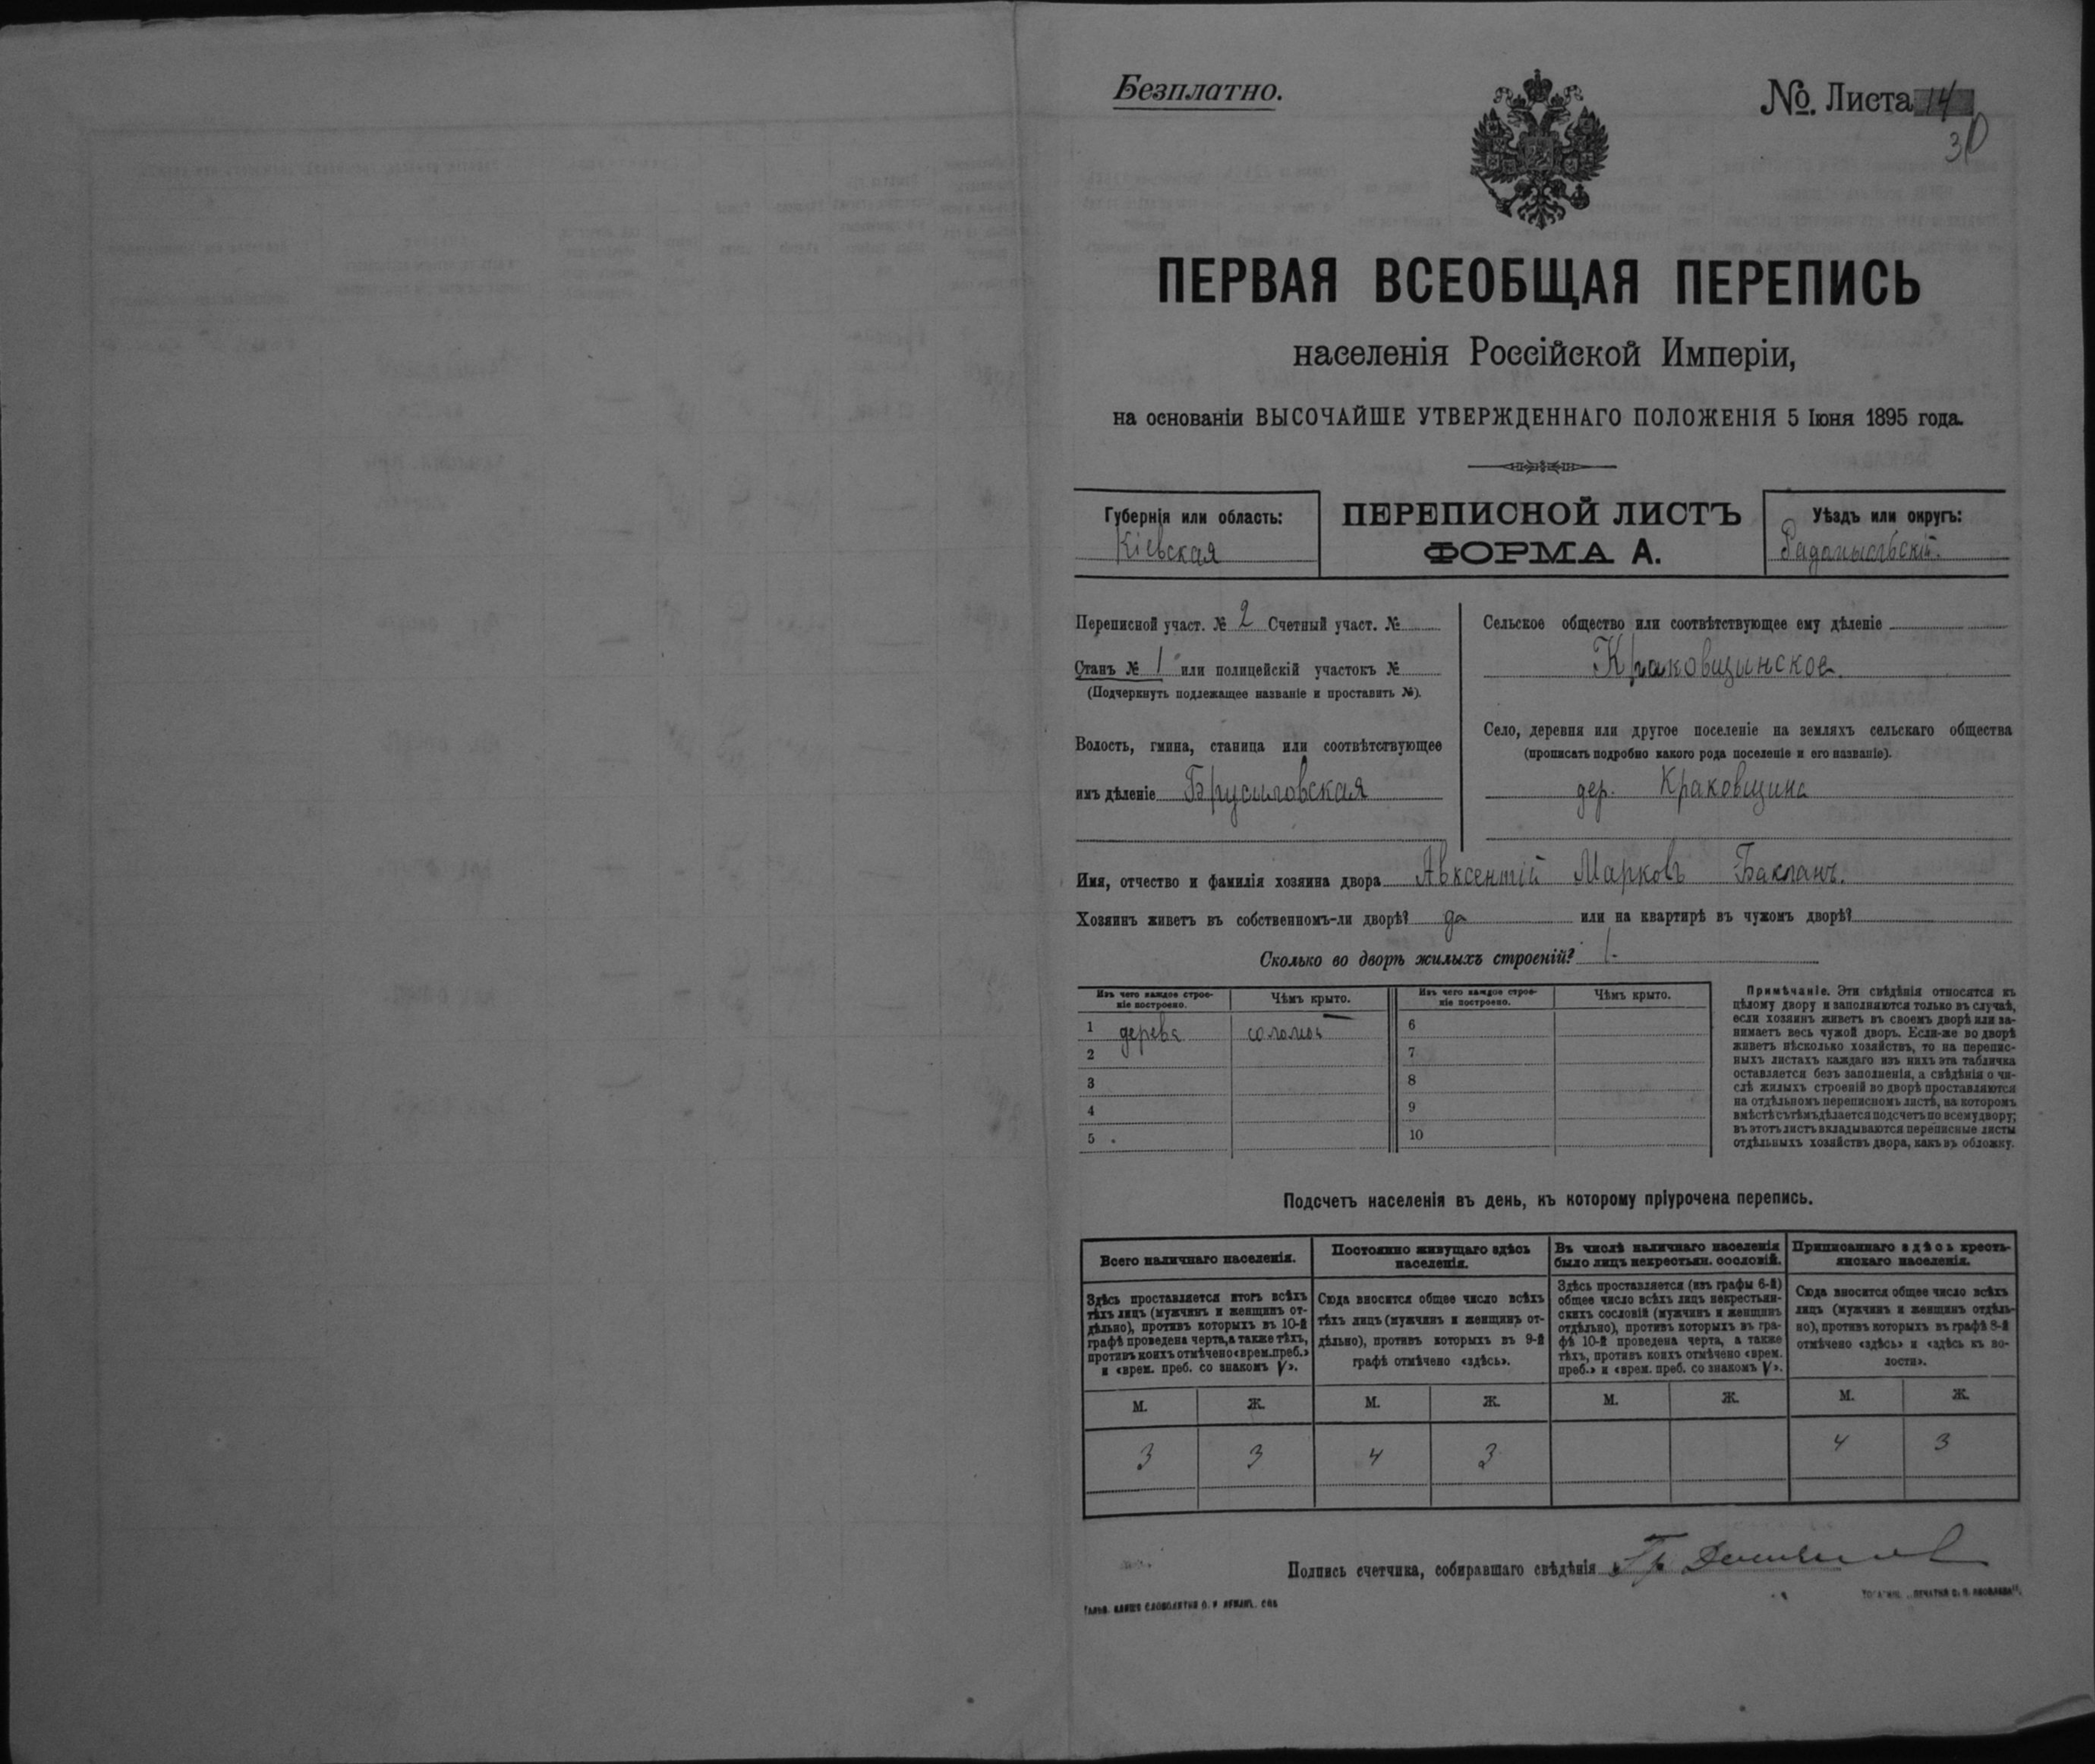 Безплатно.
№ Листа 14
30
ПЕРВАЯ ВСЕОБЩАЯ ПЕРЕПИСЬ
населенія Россійской Имперіи,
на основаніи ВЫСОЧАЙШЕ УТВЕРЖДЕННАГО ПОЛОЖЕНІЯ 5 Іюня 1895 года.
Губернія или область:
Кіевская
ПЕРЕПИСНОЙ ЛИСТЪ
ФОРМА А.
Уѣздъ или округъ:
Радомысльскій.
Переписной участ. № 2 Счетный участ. №
Станъ № 1 или полицейскій участокъ №
(Подчеркнуть подлежащее названіе и проставить №).
Волость, гмина, станица или соотвѣтствующее
имъ дѣленіе Брусиловская
Сельское общество или соотвѣтствующее ему дѣленіе
Краковщинское.
Село, деревня или другое поселеніе на земляхъ сельскаго общества
(прописать подробно какого рода поселеніе и его названіе).
дер. Краковщина
Имя, отчество и фамилія хозяина двора Авксентій Марковъ Бакланъ.
Хозяинъ живетъ въ собственномъ-ли дворѣ? да или на квартирѣ въ чужомъ дворѣ?
Сколько во дворѣ жилыхъ строеній? 1.
Изъ чего каждое строе-
ніе построено.
Чѣмъ крыто.
Изъ чего каждое строе-
ніе построено.
Чѣмъ крыто.
1 дерева соломой 6
2 7
3 8
4 9
5 10
Примѣчаніе. Эти свѣдѣнія относятся къ
цѣлому двору и заполняются только въ случаѣ,
если хозяинъ живетъ въ своемъ дворѣ или за-
нимаетъ весь чужой дворъ. Если-же во дворѣ
живетъ нѣсколько хозяйствъ, то на перепис-
ныхъ листахъ каждаго изъ нихъ эта табличка
оставляется безъ заполненія, а свѣдѣнія о чи-
слѣ жилыхъ строеній во дворѣ проставляются
на отдѣльномъ переписномъ листѣ, на которомъ
вмѣстѣ съ тѣмъ дѣлается подсчетъ по всему двору;
въ этотъ листъ вкладываются переписные листы
отдѣльныхъ хозяйствъ двора, какъ въ обложку.
Подсчетъ населенія въ день, къ которому пріурочена перепись.
Всего наличнаго населенія.
Постоянно живущаго здѣсь
населенія.
Въ числѣ наличнаго населенія
было лицъ некрестьян. сословій.
Приписаннаго здѣсь кресть-
янскаго населенія.
Здѣсь проставляется итогъ всѣхъ
тѣхъ лицъ (мужчинъ и женщинъ от-
дѣльно), противъ которыхъ въ 10-й
графѣ проведена черта, а также тѣхъ,
противъ коихъ отмѣчено «врем. преб.»
и «врем. преб. со знакомъ V».
Сюда вносится общее число всѣхъ
тѣхъ лицъ (мужчинъ и женщинъ от-
дѣльно), противъ которыхъ въ 9-й
графѣ отмѣчено «здѣсь».
Здѣсь проставляется (изъ графы 6-й)
общее число всѣхъ лицъ некрестьян-
скихъ сословій (мужчинъ и женщинъ
отдѣльно), противъ которыхъ въ гра-
фѣ 10-й проведена черта, а также
тѣхъ, противъ коихъ отмѣчено «врем.
преб.» и «врем. преб. со знакомъ V».
Сюда вносится общее число всѣхъ
лицъ (мужчинъ и женщинъ отдѣль-
но), противъ которыхъ въ графѣ 8-й
отмѣчено «здѣсь» и «здѣсь къ во-
лости».
М. Ж. М. Ж. М. Ж. М. Ж.
3 3 4 3 4 3
Подпись счетчика, собиравшаго свѣдѣнія Гр